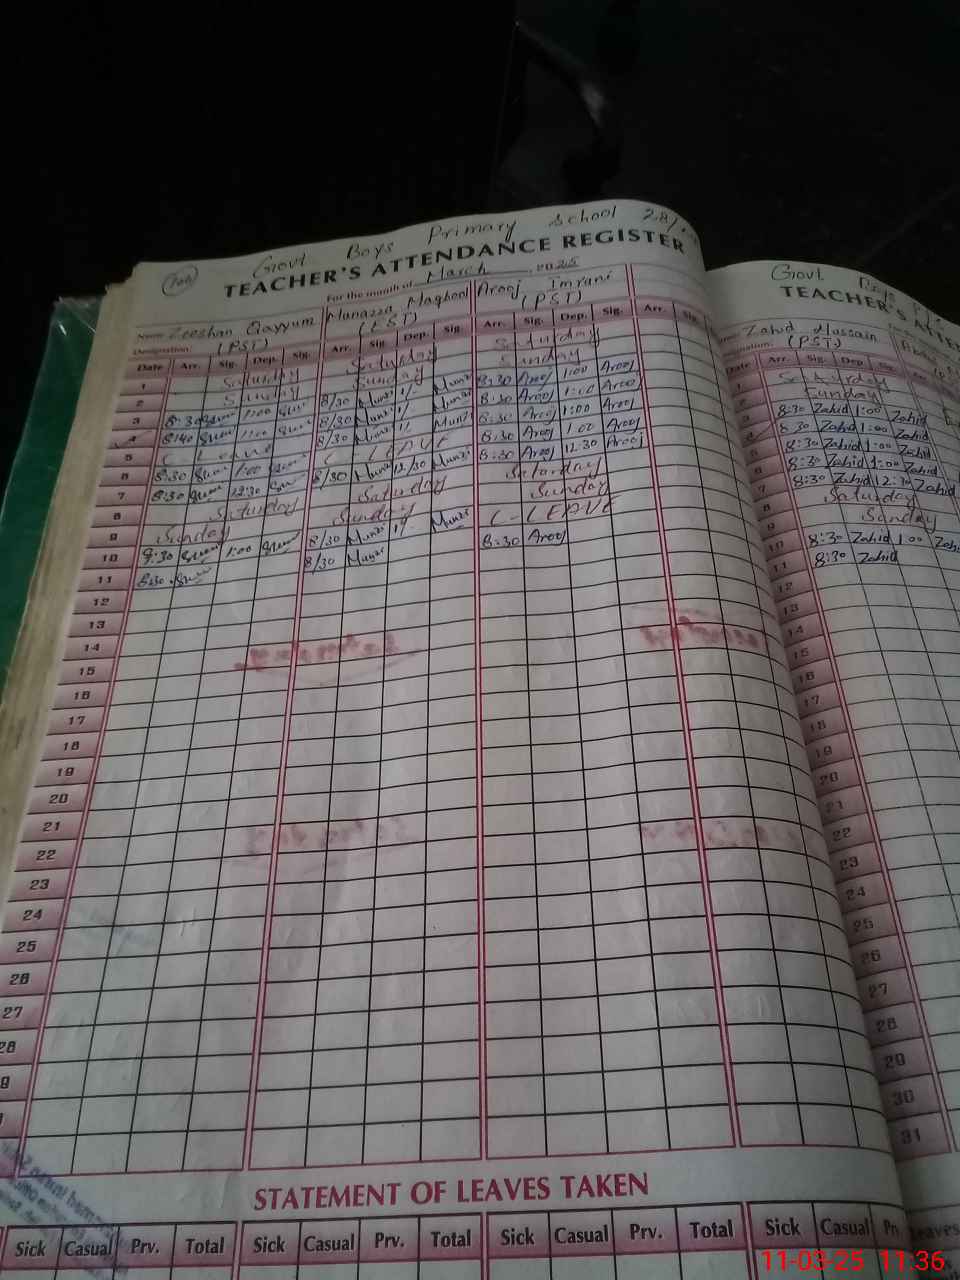 100
Govt Boys Primary School 28/
TEACHER'S ATTENDANCE REGISTER
For the month of March 2025
Name Zeeshan Qayyum Munazza Maqbool Arooj Imrani
Designation (PST) (EST) (PST)
Date Arr. Sig. Dep. Sig. Arr. Sig. Dep. Sig. Arr. Sig. Dep. Sig. Arr. Sig.
1 Saturday Saturday Saturday
2 Sunday Sunday Sunday
3 8:30 1:00 8/30 1/- 8:30 Arooj 1:00 Arooj
4 8:40 1:00 8/30 1/- 8:30 Arooj 1:00 Arooj
5 C Leave 8/30 1/- 8:30 Arooj 1:00 Arooj
6 8:30 1:00 C-LEAVE 8:30 Arooj 1:00 Arooj
7 8:30 12:30 8/30 12/30 8:30 Arooj 12:30 Arooj
8 Saturday Saturday Saturday
9 Sunday Sunday Sunday
10 8:30 1:00 8/30 1/- C-LEAVE
11 8:30 8/30 8:30 Arooj
12
13
14
15
16
17
18
19
20
21
22
23
24
25
26
27
28
STATEMENT OF LEAVES TAKEN
Sick Casual Prv. Total Sick Casual Prv. Total Sick Casual Prv. Total Sick Casual
Govt Boys
TEACHER'S
Zahid Hussain
(PST)
Arr. Sig. Dep
1 Saturday
2 Sunday
3 8:30 Zahid 1:00 Zahid
4 8:30 Zahid 1:00 Zahid
5 8:30 Zahid 1:00 Zahid
6 8:30 Zahid 1:00 Zahid
7 8:30 Zahid 12:30 Zahid
8 Saturday
9 Sunday
10 8:30 Zahid 1:00
11 8:30 Zahid
12
13
14
15
16
17
18
19
20
21
22
23
24
25
26
27
28
29
30
31
Leaves
11-03-25 11:36